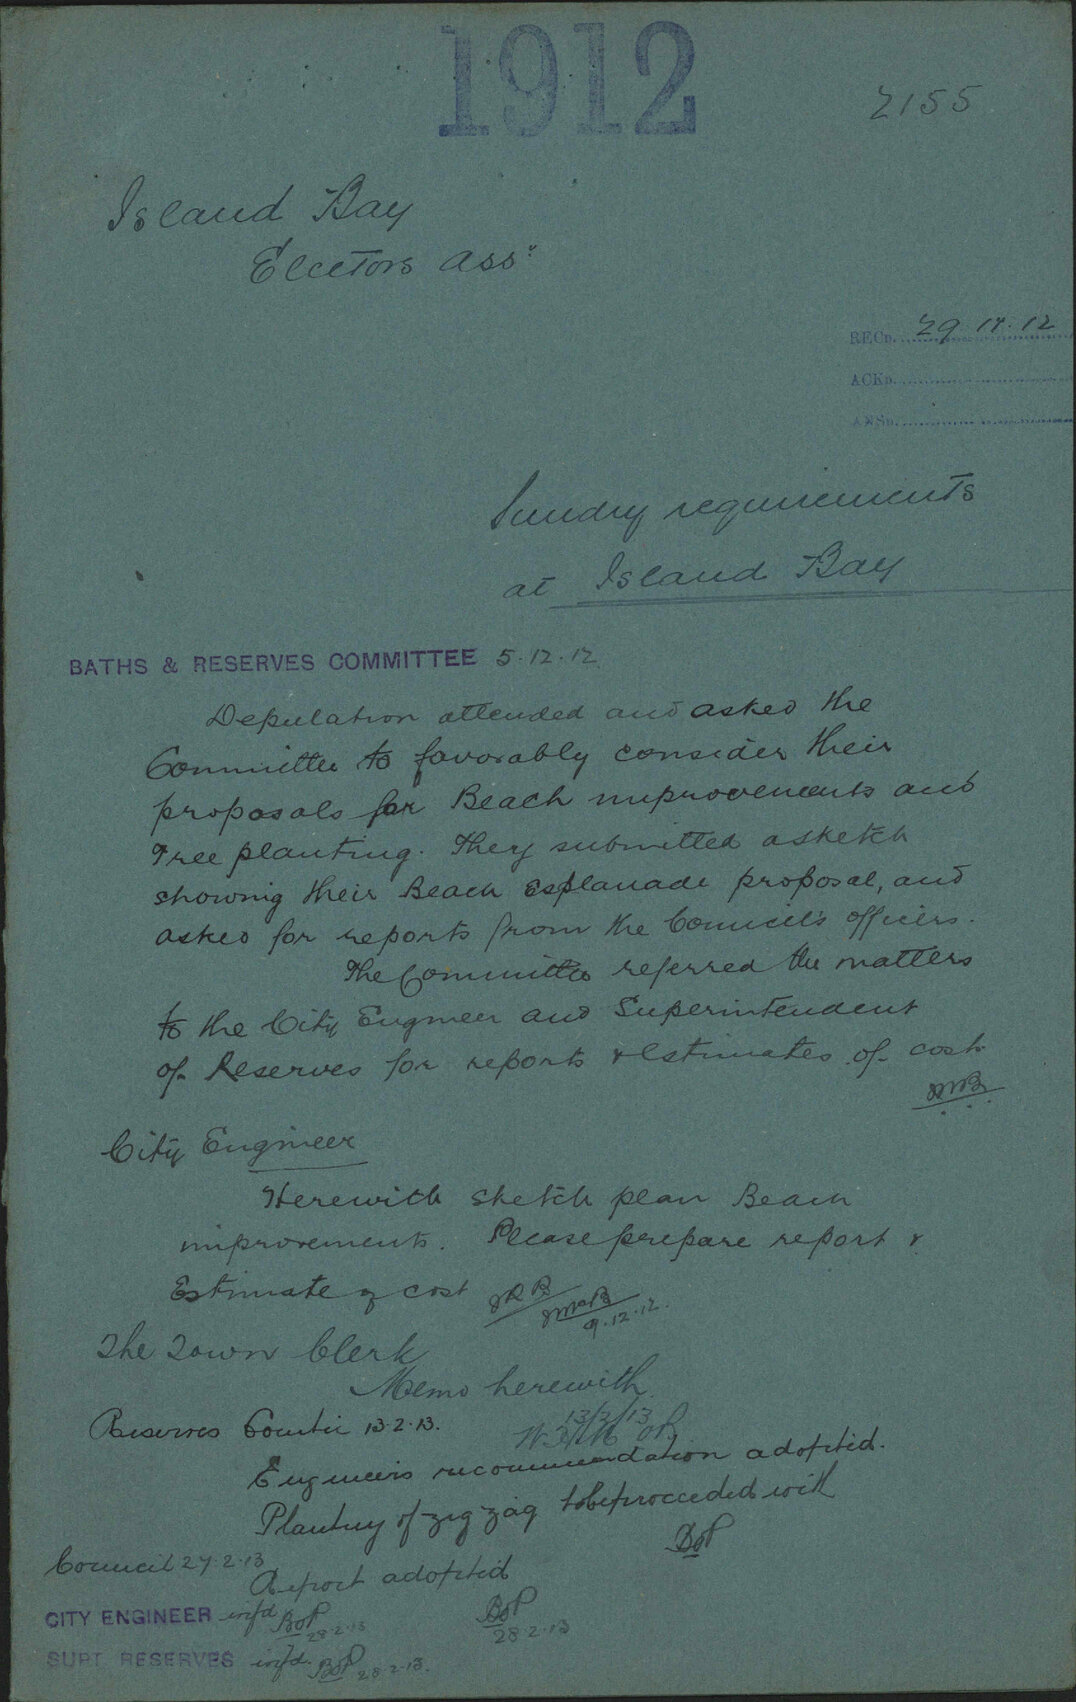 1912
2155
Island Bay
Electors Assn
RECD. 29.11.12
ACKD.
ANSD.
Sundry requirements
at Island Bay
BATHS & RESERVES COMMITTEE 5.12.12
Deputation attended and asked the
Committee to favorably consider their
proposals for Beach improvements and
Tree planting. They submitted a sketch
showing their Beach Esplanade proposal, and
asked for reports from the Council's officers.
The Committee referred the matters
to the City Engineer and Superintendent
of Reserves for reports & estimates of cost
City Engineer
Herewith sketch plan Beach
improvements. Please prepare report &
Estimate of cost
9.12.12.
The Town Clerk
Memo herewith
13/2/13
Reserves Comtee 13.2.13.
Engineers recommendation adopted.
Planting of zig zag to be proceeded with
Council 27.2.13
Report adopted
CITY ENGINEER infd 28.2.13
28.2.13
SUPT. RESERVES infd. 28.2.13.